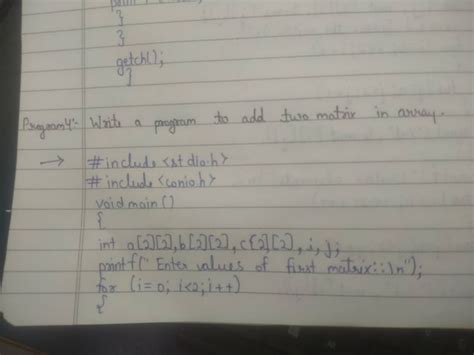 }
}
getch();
}
Program 4:- Write a program to add two matrix in array.
→ #include <stdio.h>
#include <conio.h>
void main ()
{
int a[2][2], b[2][2], c[2][2], i, j;
printf(" Enter values of first matrix::\n");
for (i=0; i<2; i++)
{